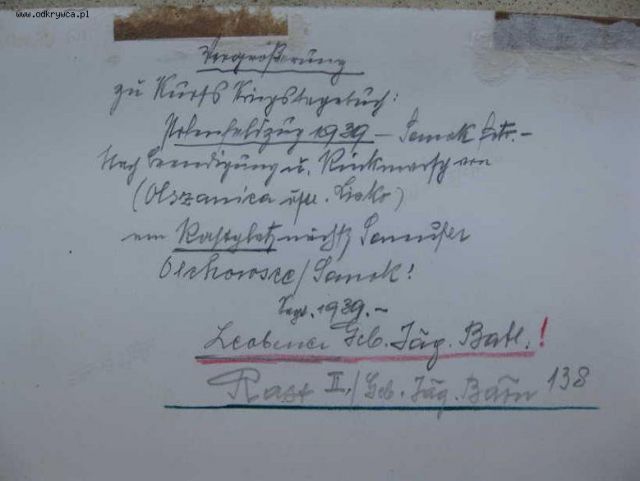 www.odkrywca.pl
Vergrößerung
zu Kurts Kriegstagebuch:
Polenfeldzug 1939 – Sanok
Nach Beendigung u. Rückmarsch von
(Olszanica Lisko)
am Rastplatz nächst Sanufer
Olchowsce/Sanok!
Sept. 1939.–
Leobener Geb. Jäg. Batl.!
Rast II./Geb. Jäg. Baon 138